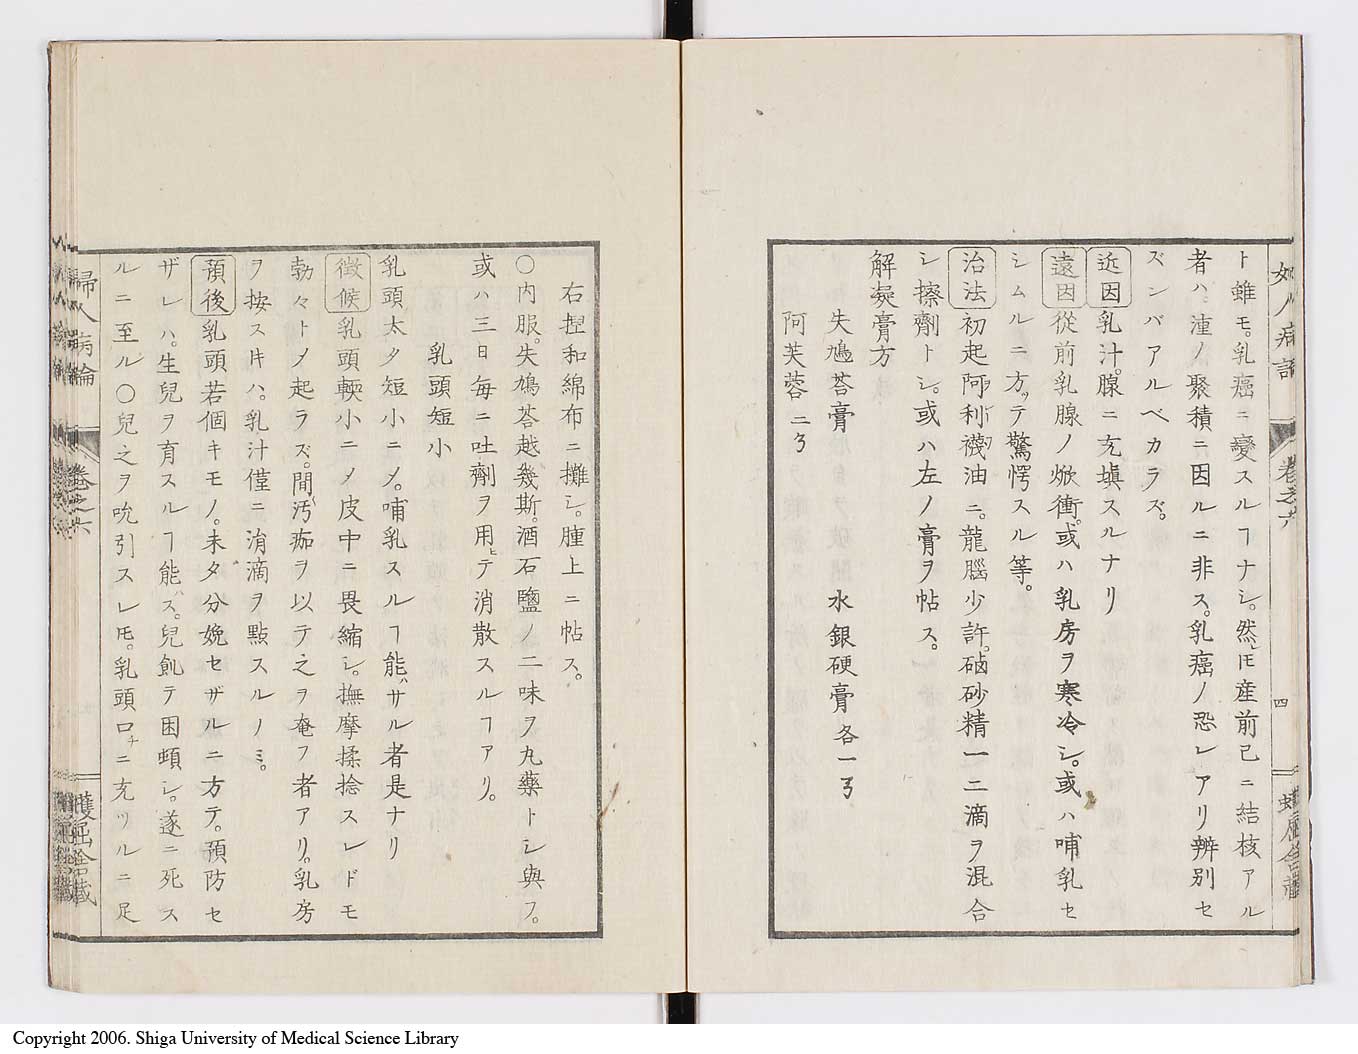 ト雖モ。乳癌ニ變スルヿナシ。然レ𪜈産前已ニ結核アル
者ハ。湩ノ聚積ニ因ルニ非ス。乳癌ノ恐レアリ辨別セ
ズンバアルベカラズ。
近因 乳汁。腺ニ充塡スルナリ
遠因 從前乳腺ノ焮衝。或ハ乳房ヲ寒冷シ。或ハ哺乳セ
シムルニ方ッテ驚愕スル等。
治法 初起阿利襪油ニ。龍腦少許。磠砂精一二滴ヲ混合
シ擦劑トシ。或ハ左ノ膏ヲ帖ス。
解凝膏方
失鳩荅膏 水銀硬膏各一ᄝ
阿芙蓉二ᄝ
婦人病論 卷之六 四 蠖屈舍藏
右揑和綿布ニ攤シ。腫上ニ帖ス。
〇内服。失鳩荅越幾斯。酒石鹽ノ二味ヲ丸藥トシ與フ。
或ハ三日每ニ吐劑ヲ用ヒテ消散スルヿアリ。
乳頭短小
乳頭太タ短小ニメ。哺乳スルヿ能ハサル者是ナリ
徵候 乳頭輭小ニメ皮中ニ畏縮シ。撫摩揉捻スレドモ
勃々トメ起ラズ。間汚痂ヲ以テ之ヲ奄フ者アリ。乳房
ヲ按スル𪜈ハ。乳汁僅ニ涓滴ヲ點スルノミ。
預後 乳頭若個キモノ。未タ分娩セザルニ方テ。預防セ
ザレハ。生兒ヲ育スルヿ能ハス。兒飢テ困頓シ。遂ニ死ス
ルニ至ル〇兒之ヲ吮引スレ𪜈。乳頭口チニ充ツルニ足
婦人病論 卷之六 蠖屈舍藏
Copyright 2006. Shiga University of Medical Science Library